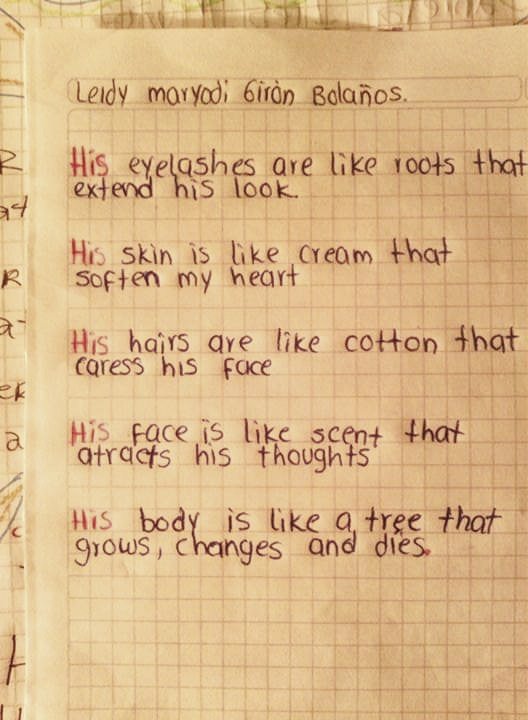 Leidy maryodi Girón Bolaños.
His eyelashes are like roots that
extend his look.
His skin is like cream that
soften my heart
His hairs are like cotton that
caress his face
His face is like scent that
atracts his thoughts
His body is like a tree that
grows, changes and dies.